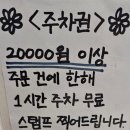 <주차권>
20000원 이상
주문 건에 한해
1시간 주차 무료
스탬프 찍어드립니다